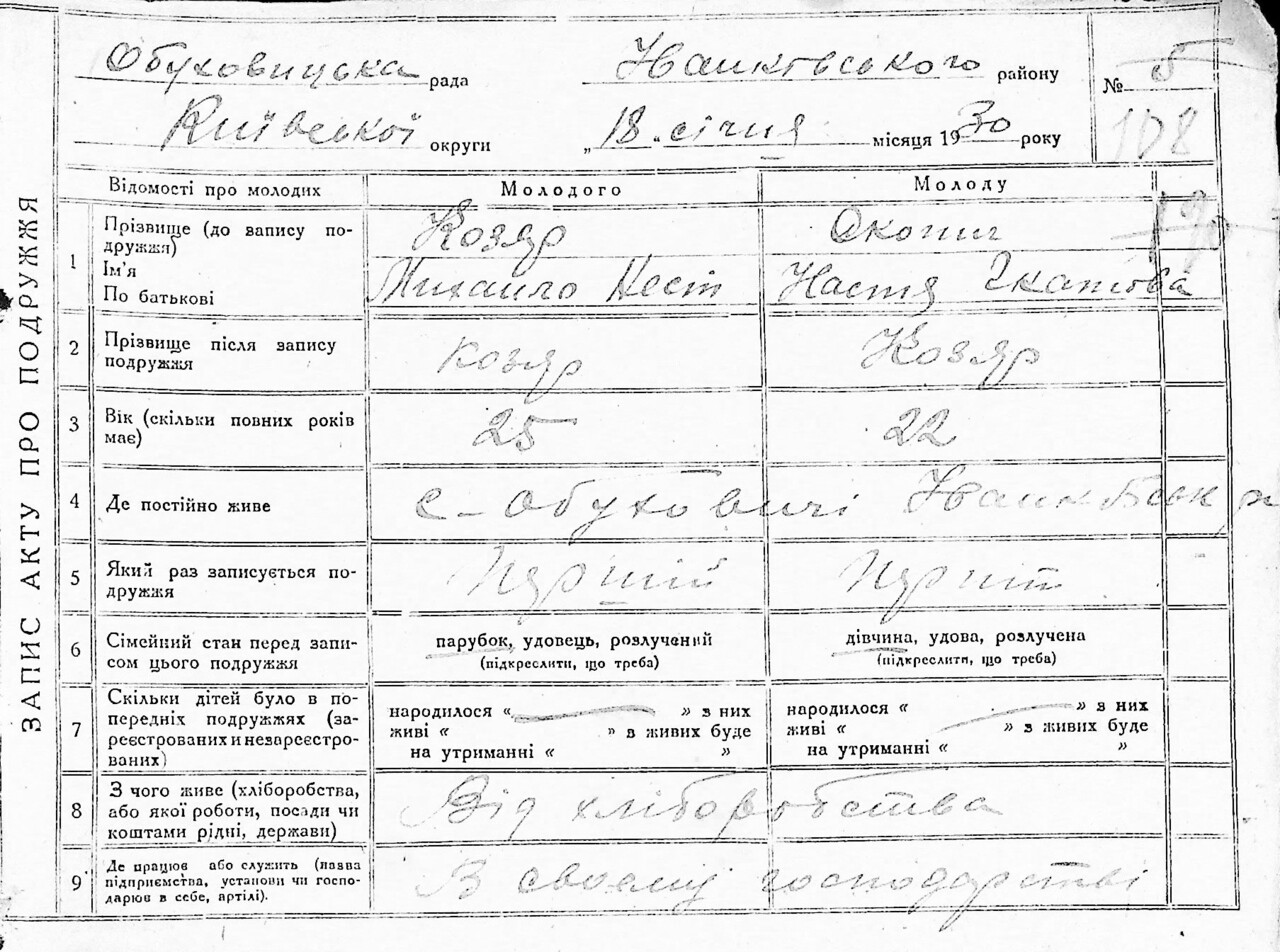 ЗАПИС АКТУ ПРО ПОДРУЖЖЯ
Обуховицька рада Іванковського району № 5
Київської округи „18„ січня місяця 1930 року 108
Відомості про молодих Молодого Молоду
1 Прізвище (до запису по-
дружжя) Козяр
Ім'я
По батькові Михайло Нест Настя Гнатова
2 Прізвище після запису
подружжя Козяр Козяр
3 Вік (скільки повних років
має) 25 22
4 Де постійно живе с-Обуховичі Іванк
5 Який раз записується по-
дружжя
6 Сімейний стан перед запи-
сом цього подружжя парубок, удовець, розлучений дівчина, удова, розлучена
(підкреслити, що треба) (підкреслити, що треба)
7 Скільки дітей було в по-
передніх подружжях (за-
реєстрованих и незареєстро-
ваних)
народилося « » з них народилося « » з них
живі « » з живих буде живі « » з живих буде
на утриманні « » на утриманні « »
8 З чого живе (хліборобства,
або якої роботи, посади чи
коштами рідні, держави) Від хліборобства
9 Де працює або служить (назва
підприємства, установи чи госпо-
дарює в себе, артілі). В своєму господарстві